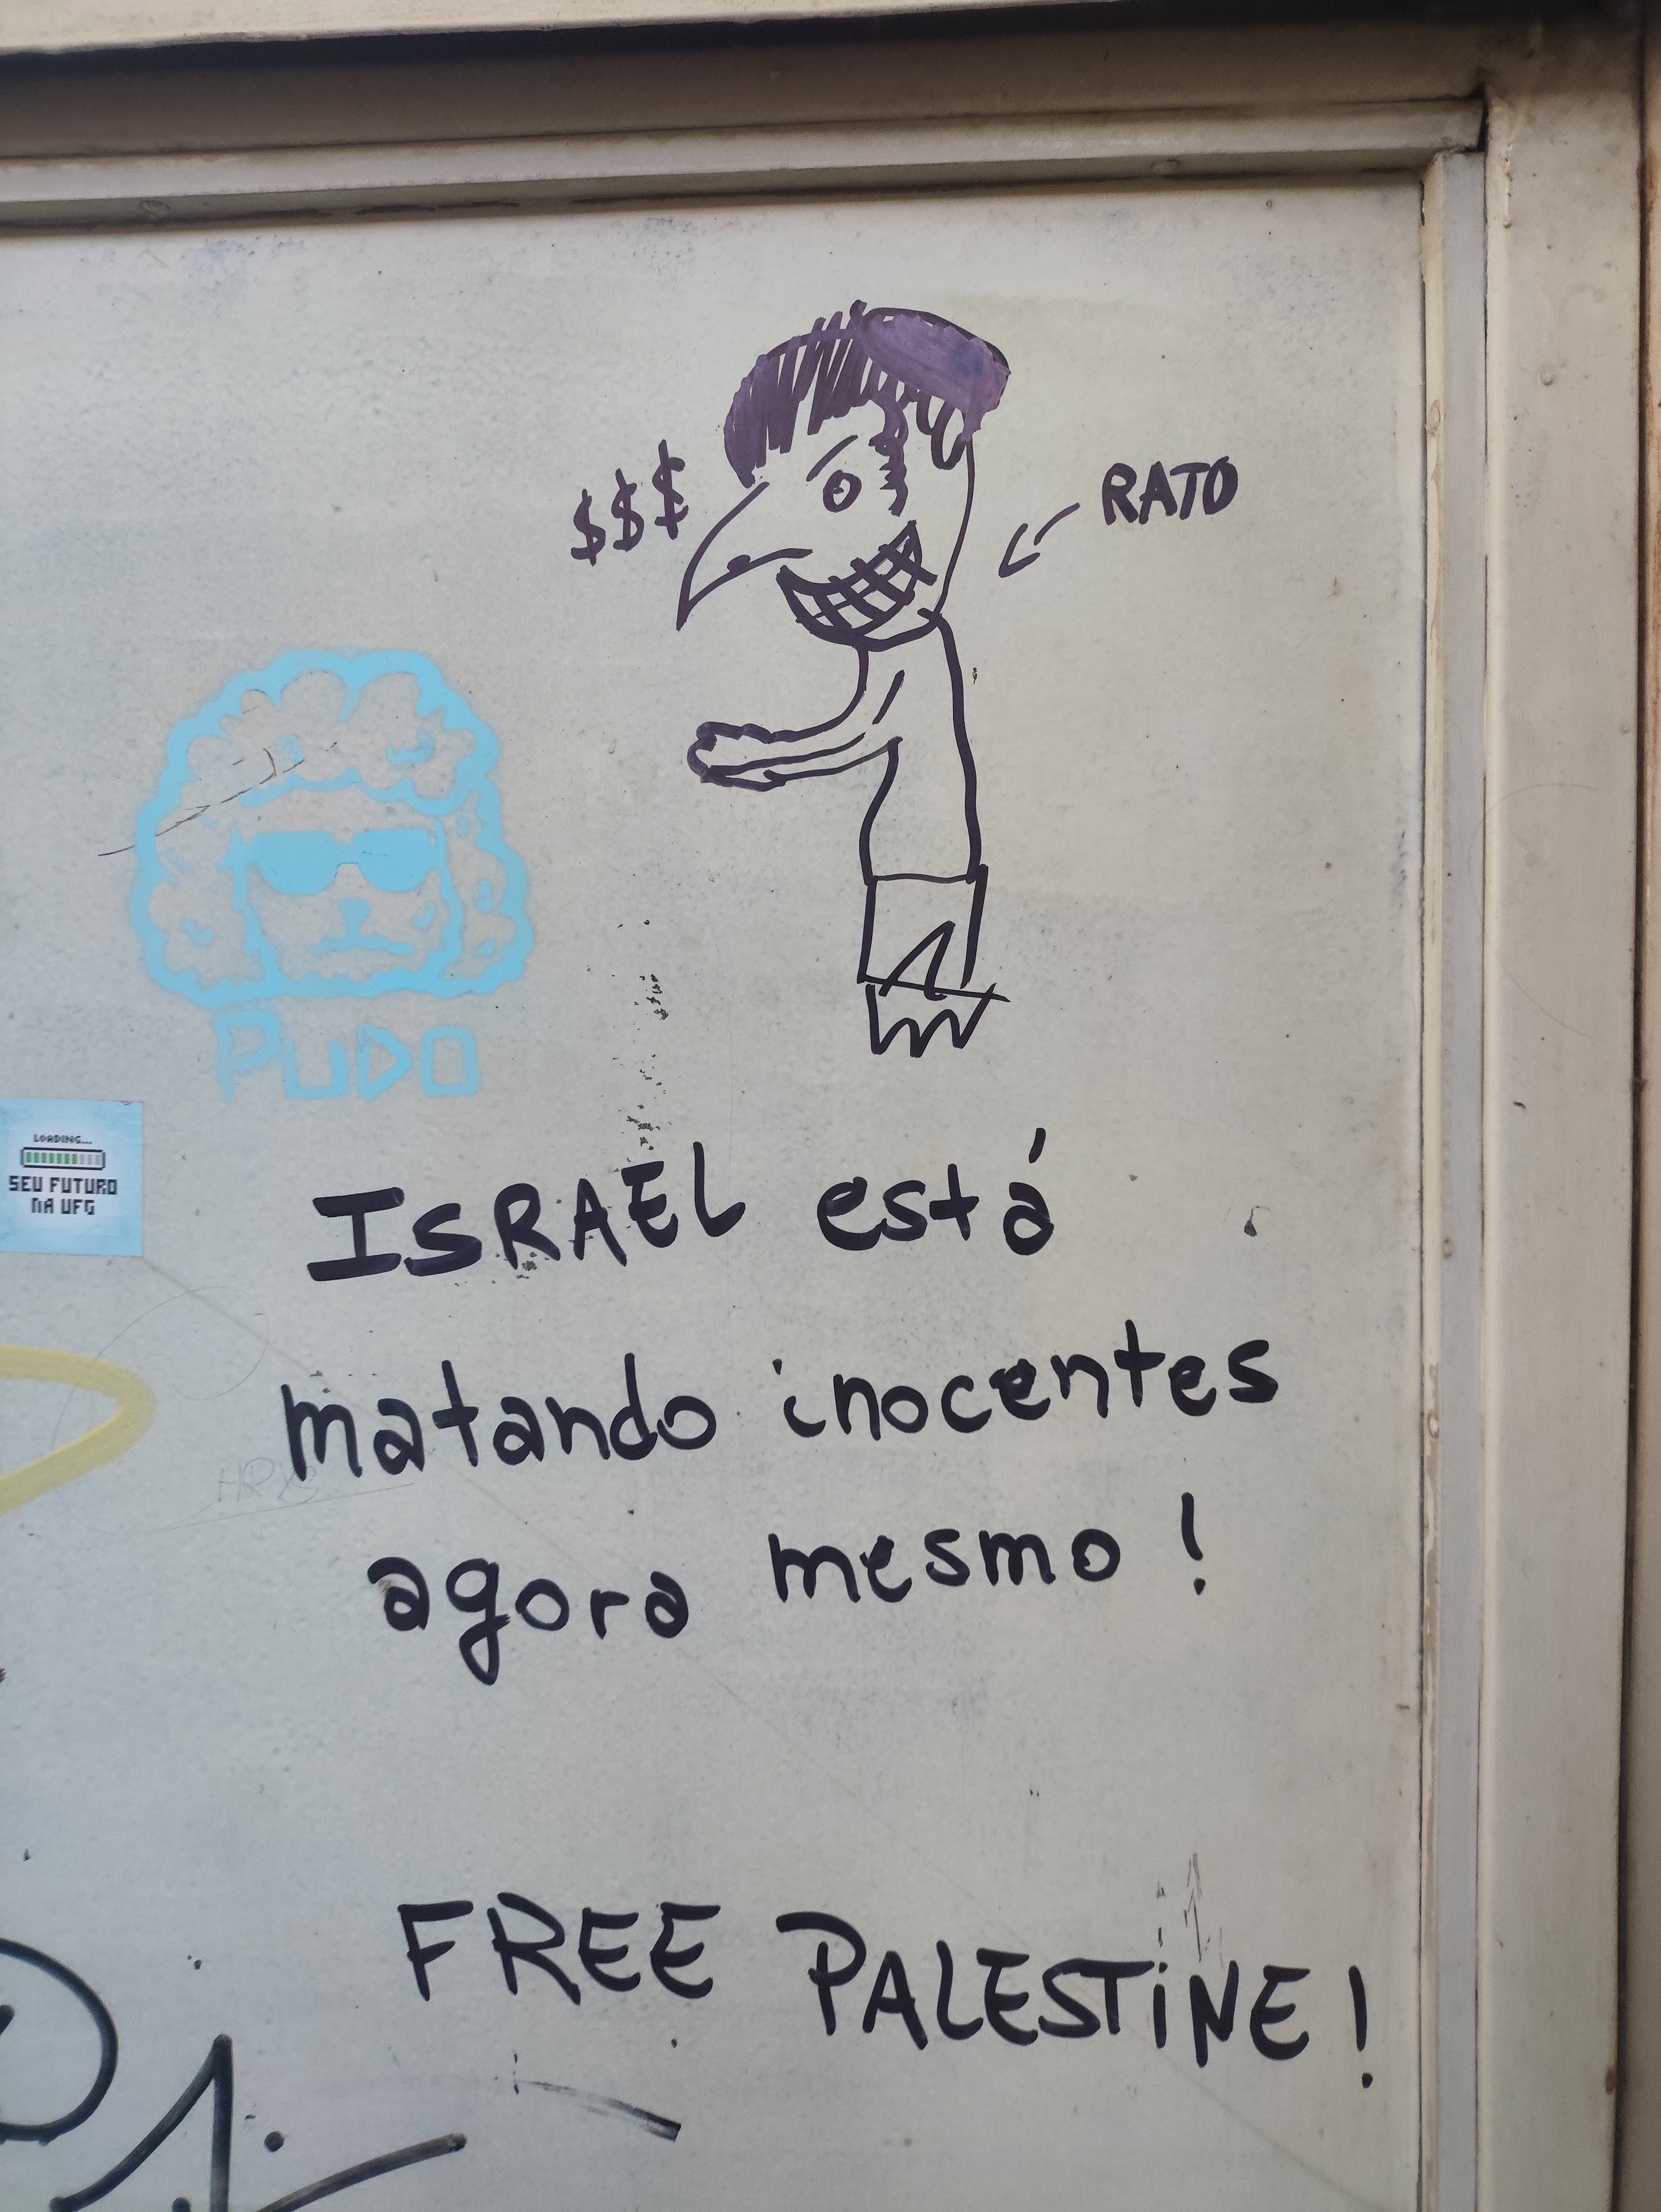 $$$
RATO
PUDO
LOADING...
SEU FUTURO
NA UFG
ISRAEL está
matando inocentes
agora mesmo !
FREE PALESTINE !